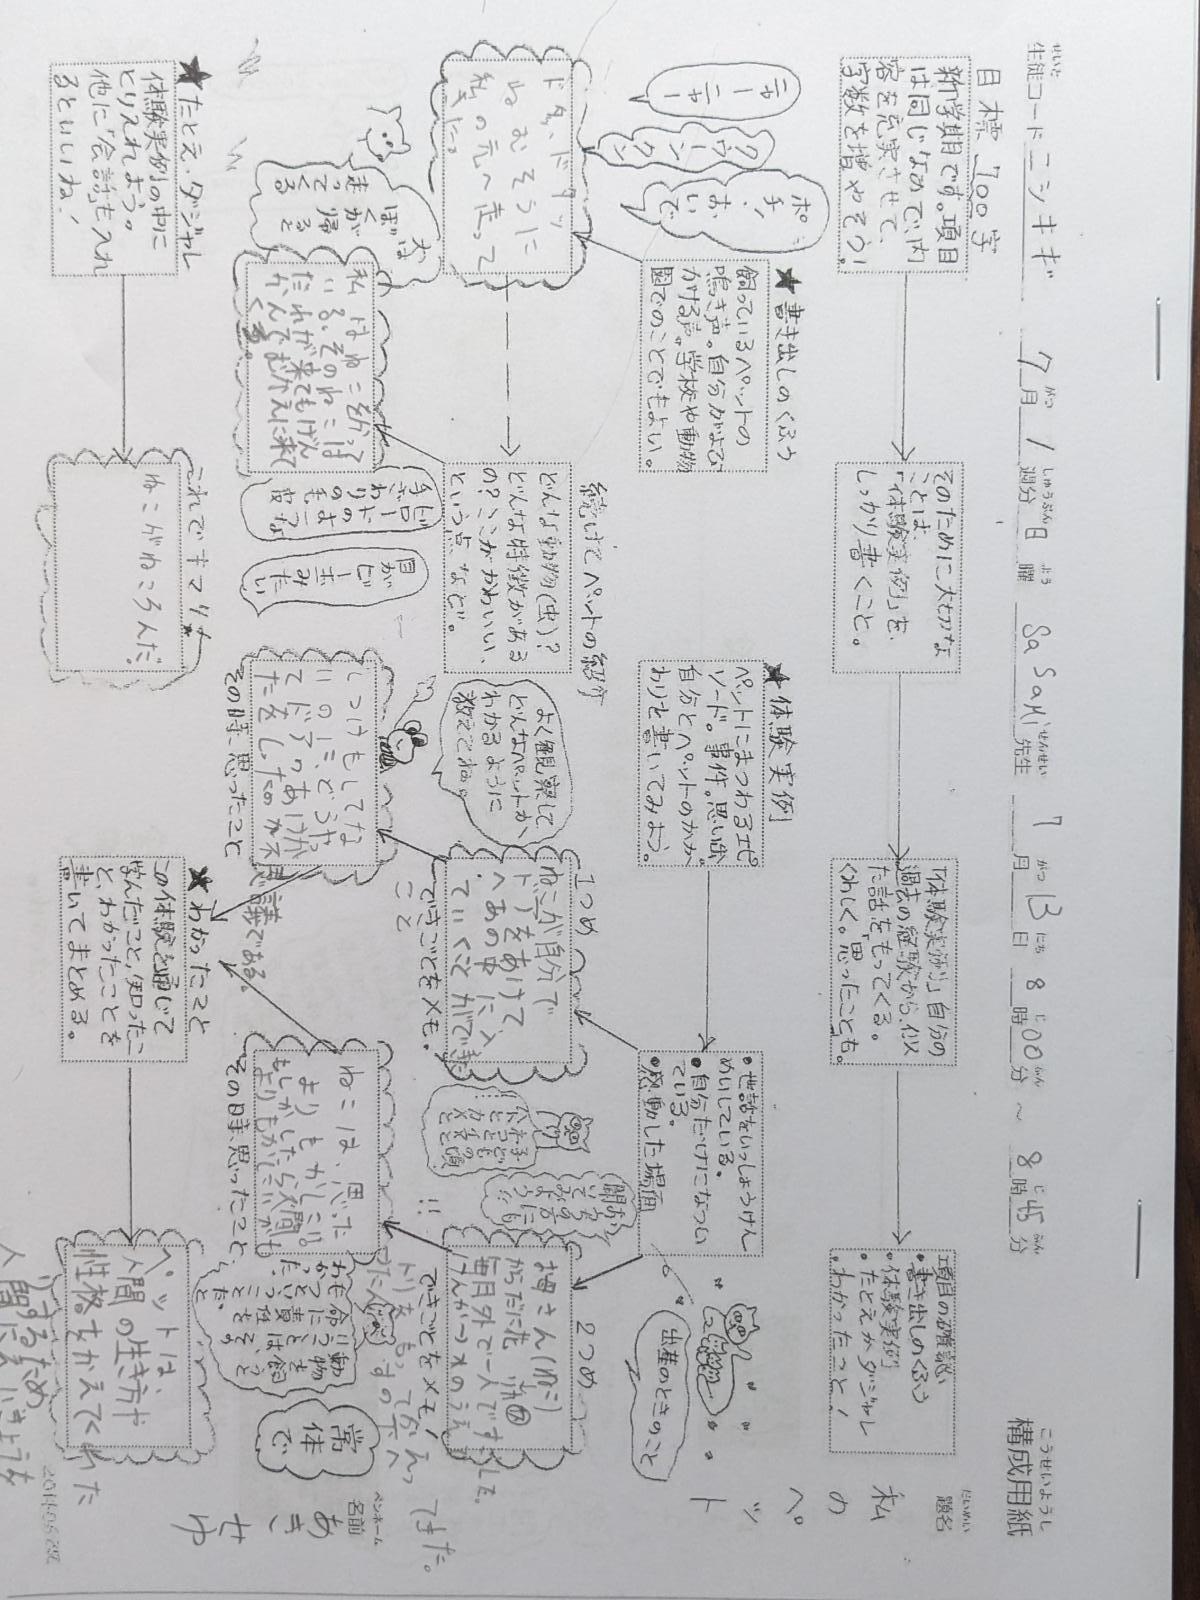 構成用紙
こうせいようし
せいと
生徒コード ニシキギ 7月 1週分 日曜 SaSaki先生 7月13日 8時00分 ~ 8時45分
だいめい
題名
私のペット
ペンネーム
名前
あきせゆ
目標 700字
新学期です。項目
は同じなので、内
容を充実させて、
字数を増やそう!
そのために大切な
ことは、
「体験実例」を、
しっかり書くこと。
「体験実例」自分の
過去の経験から、似
た話をもってくる。
くわしく。思ったことも。
項目の確認
・書き出しのくふう
・体験実例
・たとえかダジャレ
・わかったこと!
★書き出しのくふう
飼っているペットの
鳴き声。自分がよび
かける声。学校や動物
園でのことでもよい。
ニャーニャー
クウーンクン
ポチ、おいで
ドタ、ドタッ
ねむそうに
私の元へ走って
きた。
ぼくが帰ると
走ってくる
犬
続けてペットの紹介
どんな動物(虫)?
どんな特徴がある
の?ここがかわいい、
という点、など。
私はねこをかって
いる。そのねこは
だれが来てもげん
かんでむかえに来て
くる。
ビロードのような
手ざわりの毛皮
目がビー玉みたい
よく観察して
どんなペットか、
わかるように
教えてね。
★体験実例
ペットにまつわるエピ
ソード。事件。思い出。
自分とペットのかか
わりを書いてみよう。
・世話をいっしょうけん
めいしている。
・自分だけになつい
ている。
・感動した場面
出産のときのこと
1つめ
ねこが自分で
ドアをあけて
へやの中に入
っていくことができた
できごとをメモ。
こと
しつけもしてな
いのに、どうやっ
てドアのあけか
たをしったのか不思議である。
その時、思ったこと
2つめ
お母さん(ねこ)
毎月外で一人です
できごとをメモ!
ねこは、思った
よりもかしこい。
もしかしたら人間
よりもかしこいかも
その時、思ったこと
常体で
★わかったこと
この体験を通じて
学んだこと、知ったこ
と、わかったことを
書いてまとめる。
ペットは、
人間の生き方や
性格をかえてくれた
りするため
人間にえいきょうを
★たとえ・ダジャレ
体験実例の中に
とり入れよう。
他に「会話」も入れ
るといいね!
これでキマリ★
ねこがねころんだ。